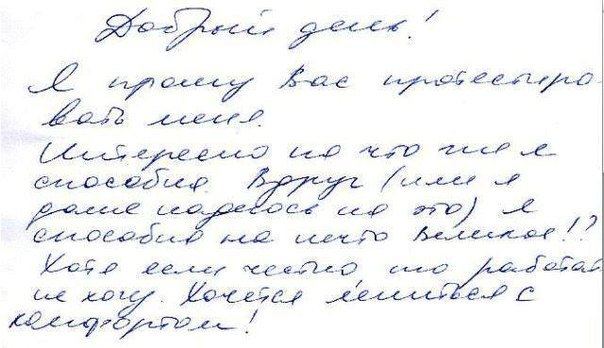 Добрый день!
Я прошу Вас протестиро
вать меня.
Интересно на что же я
способна. Вдруг (или я
даже надеюсь на это) я
способна на нечто Великое!?
Хотя если честно то работать
не хочу. Хочется лениться с
комфортом!